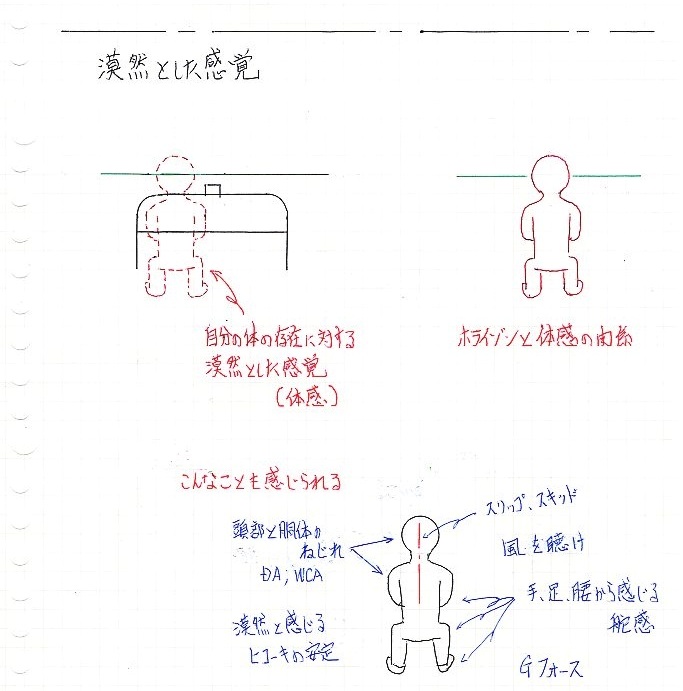 漠然とした感覚
自分の体の存在に対する
漠然とした感覚
(体感)
ホライゾンと体感の関係
こんなことも感じられる
頭部と胴体の
ねじれ
DA; WCA
漠然と感じる
ヒコーキの安定
スリップ、スキッド
風を聴け
手、足、腰から感じる
舵感
Gフォース